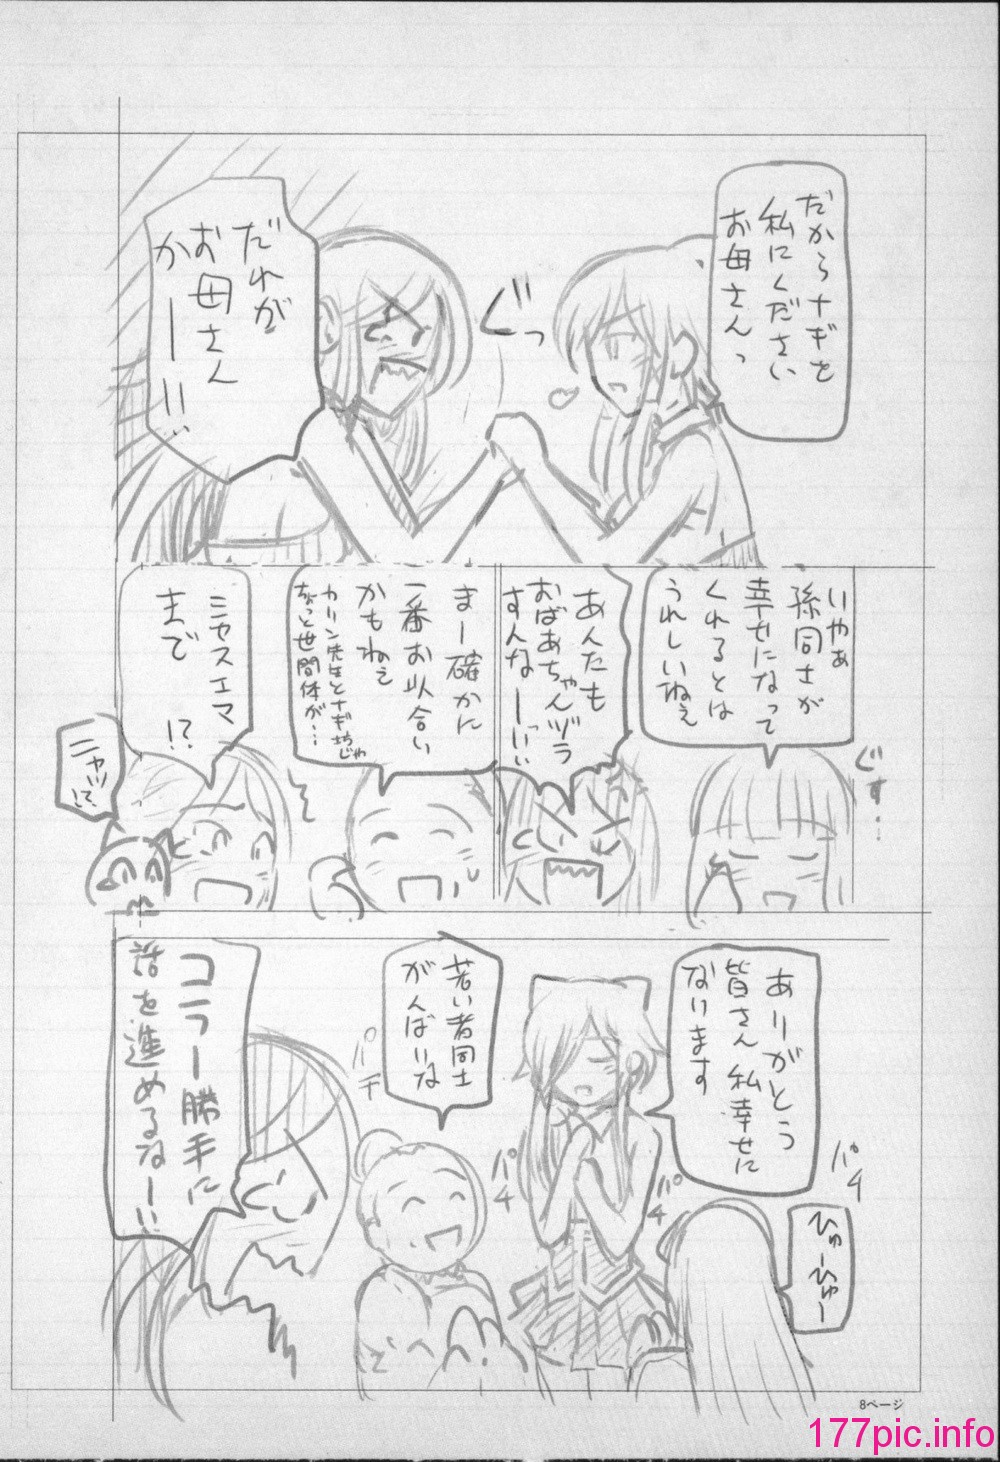 だからナギを
私にください
お母さんっ
ぐっ
だれが
お母さん
かーーー!!
いやぁ
孫同士が
幸せになって
くれるとは
うれしいねぇ
ぐす…
あんたも
おばあちゃんヅラ
すんなーっ!!
まー確かに
一番お似合い
かもねぇ
カリン先生とナギ
ちょっと世間体が…
ミャスエマ
まで
!?
ニャッ!?
ありがとう
皆さん私幸せに
なります
パチ
ひゅーひゅー
パチ
パチ
若い者同士
がんばいな
パチ
コラー勝手に
話を進めるなー!!
8ページ
177pic.info